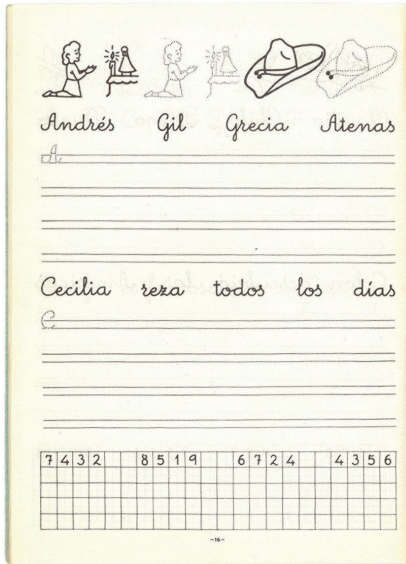 Andrés Gil Grecia Atenas
A
Cecilia reza todos los días
C
7 4 3 2 8 5 1 9 6 7 2 4 4 3 5 6
-16-